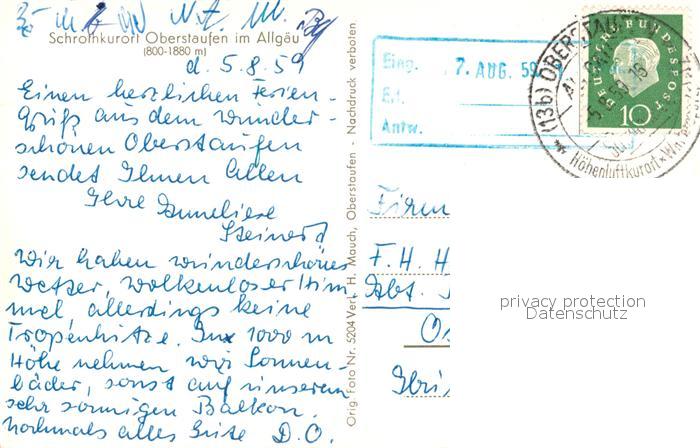 Schrothkurort Oberstaufen im Allgäu
(800-1880 m)
d. 5.8.59
Einen herzlichen Ferien-
gruß aus dem wunder-
schönen Oberstaufen
sendet Ihnen Allen
Ihre Anneliese
Steinert
Wir haben wunderschönes
Wetter, wolkenloser Him
mel, allerdings keine
Tropenhitze. In 1000 m
Höhe nehmen wir Sonnen-
bäder, sonst auf unserem
sehr sonnigen Balkon.
Nochmals alles Gute D.O.
Orig. Foto Nr. 5204 Verl. H. Mauch, Oberstaufen - Nachdruck verboten
Eing. 7. AUG. 59
Erl.
Antw.
DEUTSCHE BUNDESPOST
10
(13b) OBERSTAUFEN
Höhenluftkurort
Firm
F. H. H
Abt.
privacy protection
Datenschutz